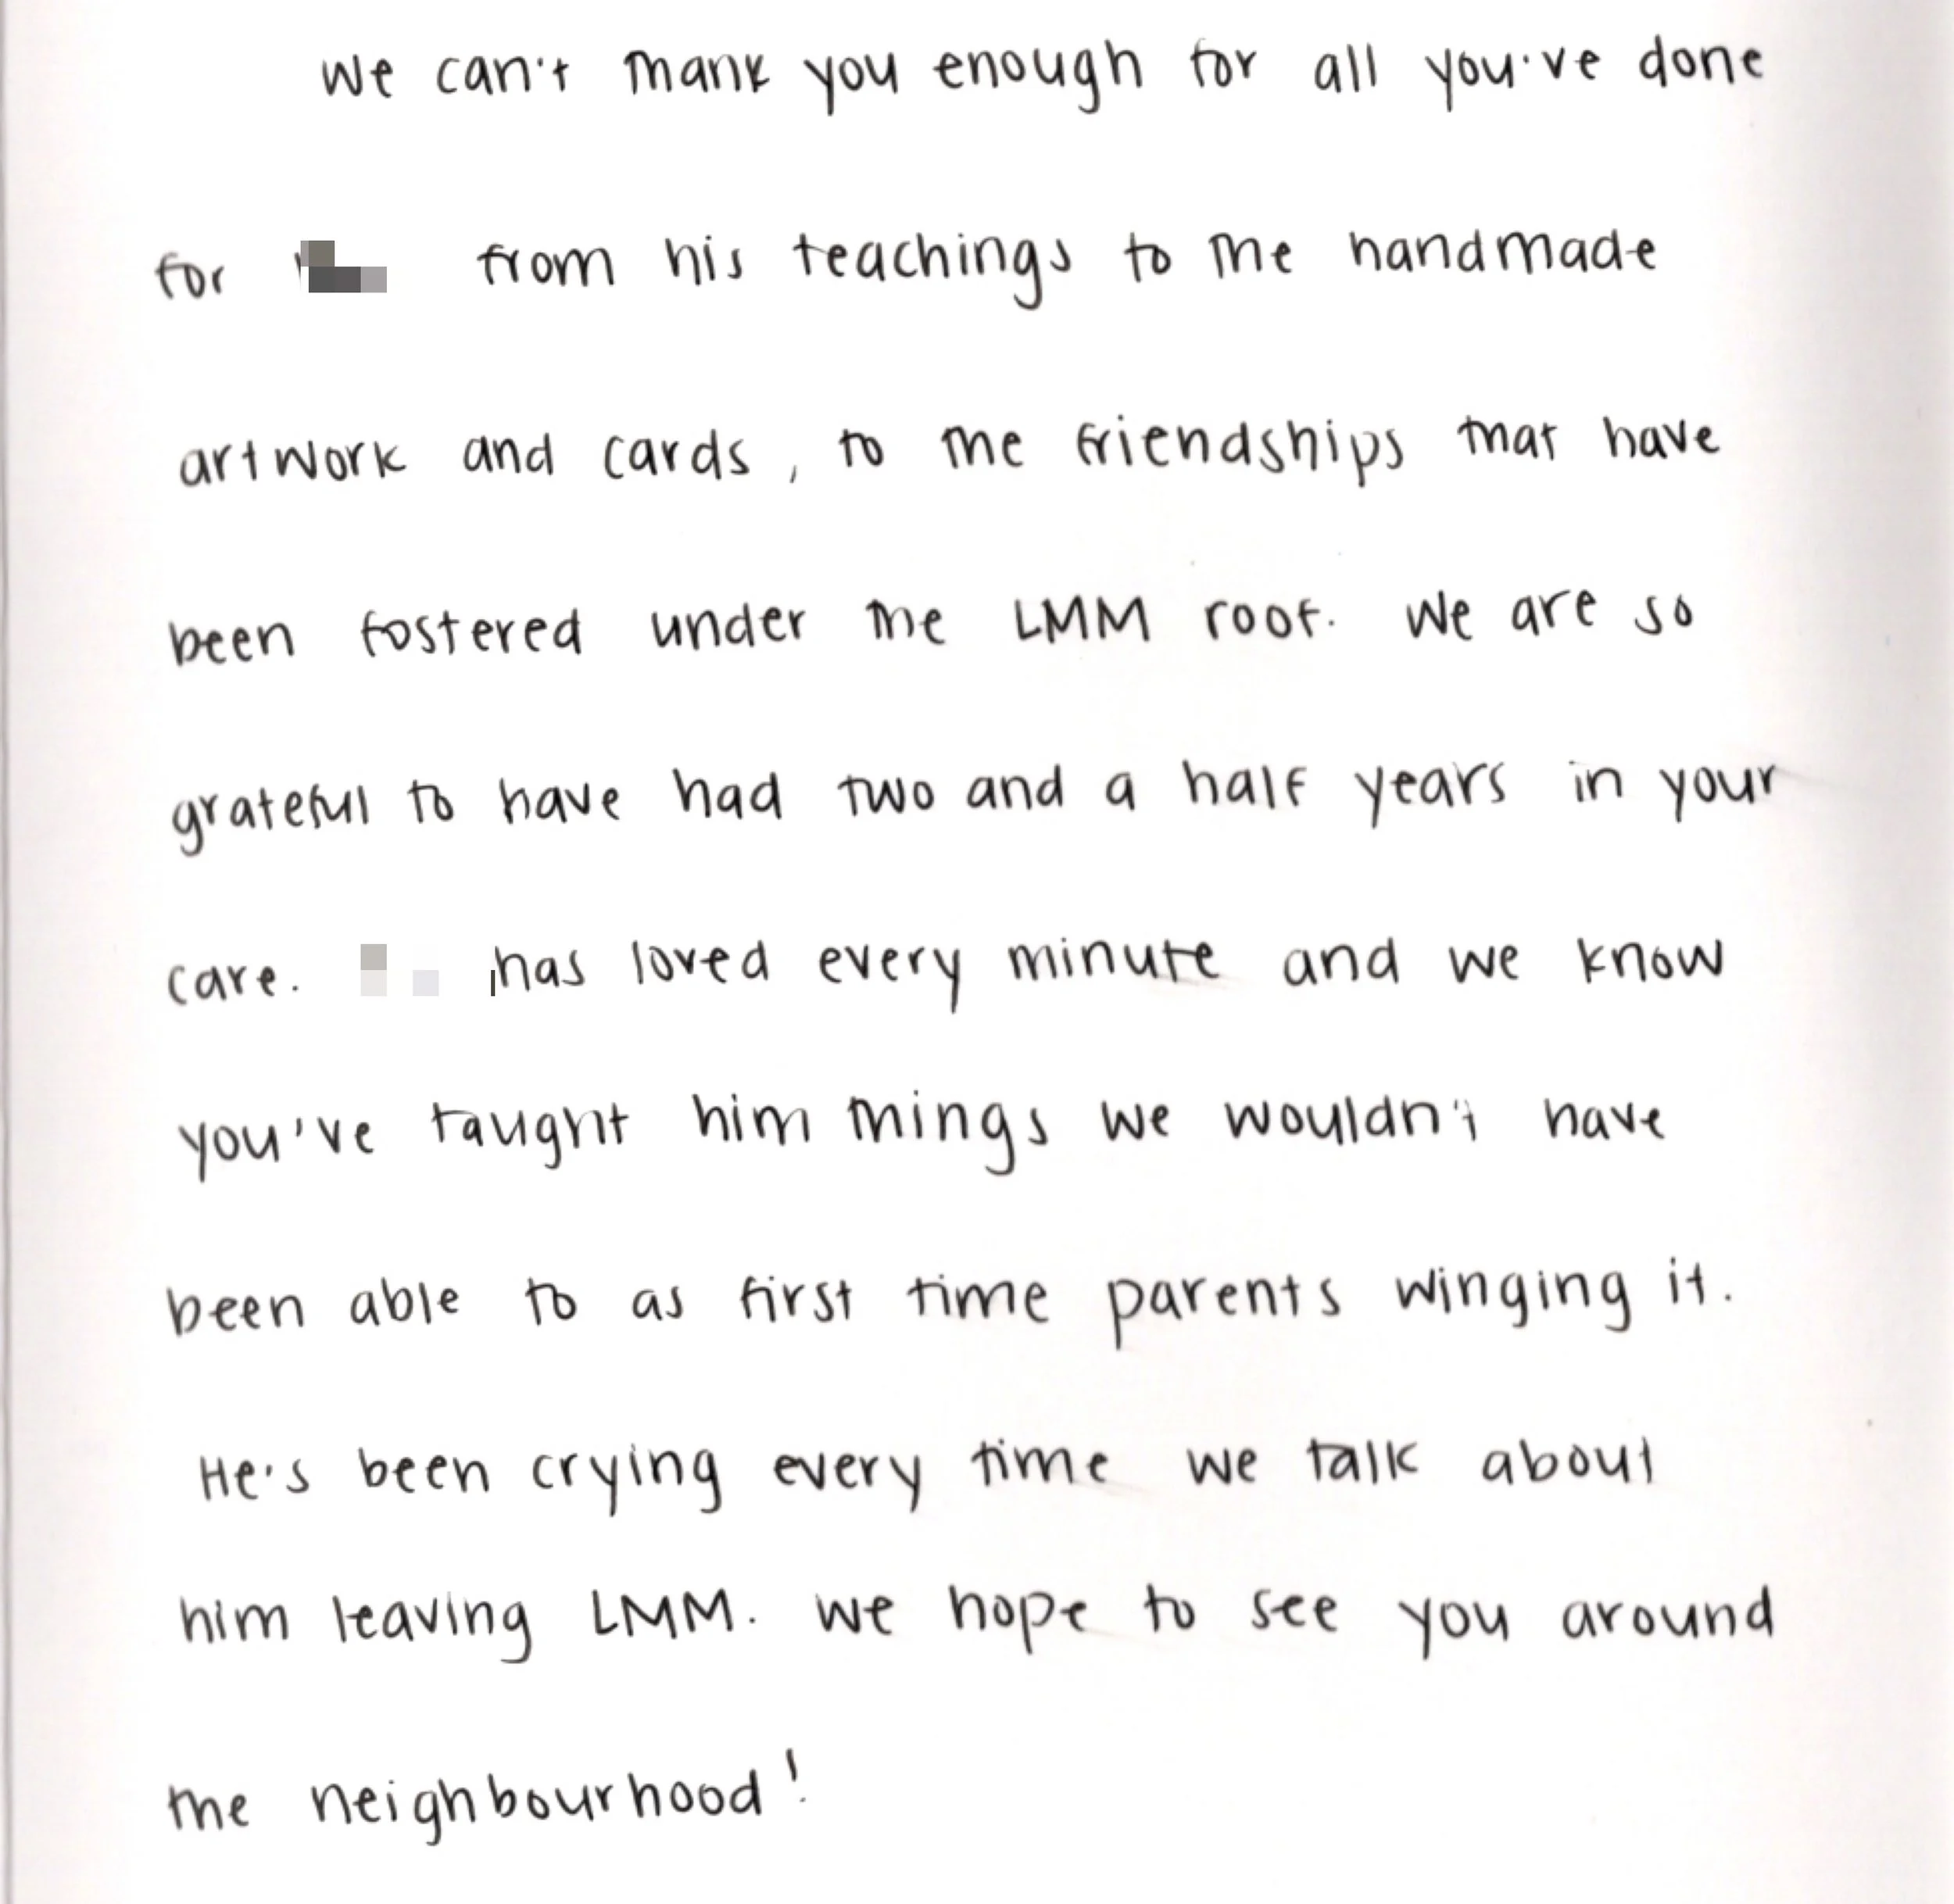 We can't thank you enough for all you've done
for from his teachings to the handmade
artwork and cards, to the friendships that have
been fostered under the LMM roof. We are so
grateful to have had two and a half years in your
care. has loved every minute and we know
you've taught him things we wouldn't have
been able to as first time parents winging it.
He's been crying every time we talk about
him leaving LMM. We hope to see you around
the neighbourhood!